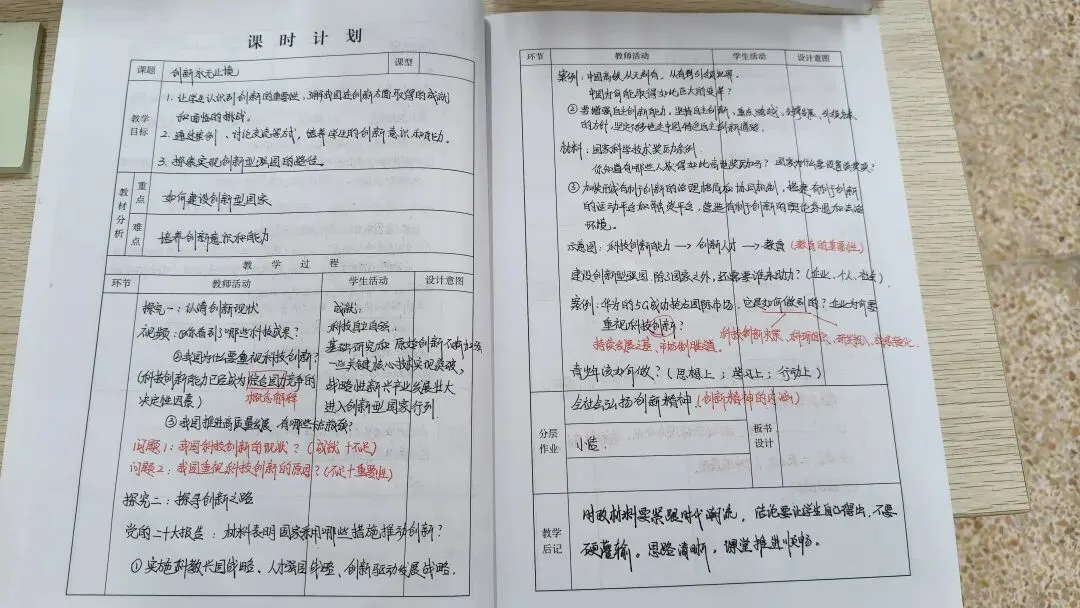 课时计划
课题 创新永无止境 课型
教学目标
1. 让学生认识到创新的重要性，了解我国在创新方面取得的成就
和面临的挑战。
2. 通过案例、讨论交流等方式，培养学生的创新意识和能力。
3. 探索实现创新型强国的路径。
教材分析
重点 如何建设创新型国家
难点 培养创新意识和能力
教学过程
环节 教师活动 学生活动 设计意图
探究一：认清创新现状
视频：①你看到了哪些科技成果？
②我国为什么要重视科技创新？
(科技创新能力已经成为综合国力竞争的
决定性因素)
概念解释
③我国推进高质量发展，有哪些
问题1：我国科技创新的现状？(成就+不足)
问题2：我国重视科技创新的原因？(不足+重要性)
探究二：探寻创新之路
党的二十大报告：材料表明国家采用哪些措施推动创新？
①实施科教兴国战略、人才强国战略、创新驱动发展战略.
成就：
科技自立自强.
基础研究和原始创新不断加强
一些关键核心技术实现突破,
战略性新兴产业发展壮大
进入创新型国家行列
环节 教师活动 学生活动 设计意图
案例：中国高铁从无到有，从有到
中国为何能取得如此巨大的变革？
②要增强自主创新能力，坚持自主创新、重点跨越、支撑发展、引领未来
的方针，坚定不移地走中国特色自主创新道路.
材料：国家科学技术奖励条例
你知道有哪些人获得如此高的奖励吗？国家为什么要设置该奖项？
③加快形成有利于创新的治理格局和协同机制，搭建有利于创新
的活动平台和融资平台，营造有利于创新的舆论氛围和法治
环境。
示意图：科技创新能力→创新人才→教育(教育的重要性)
建设创新型强国，除了国家之外，还需要谁来助力？(企业、个人、社会)
案例：华为的5G成功抢占国际市场，它是如何做到的？企业为何要
重视科技创新？
科技创新决策、科研组织、研发投入、成果转化.
持续发展之基、市场制胜之道.
青少年该如何做？(思想上；学习上；行动上)
全社会弘扬创新精神.(创新精神的内涵)
分层作业 小结： 板书设计
教学后记
时政材料要紧跟时代潮流，结论要让学生自己得出，不要
硬灌输。思路清晰，课堂推进顺畅。